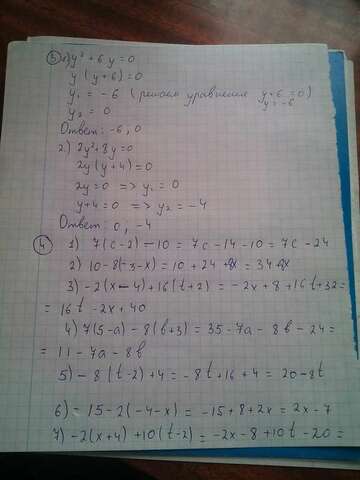 ③ 1) y² + 6y = 0
y (y+6) = 0
y₁ = -6 (решаем уравнение y+6=0)
y = -6
y₂ = 0
Ответ: -6; 0
2) 2y² + 8y = 0
2y (y+4) = 0
2y = 0 => y₁ = 0
y+4 = 0 => y₂ = -4
Ответ: 0; -4
④ 1) 7(c-2) - 10 = 7c - 14 - 10 = 7c - 24
2) 10 - 8(-3-x) = 10 + 24 + 8x = 34 + 8x
3) -2(x-4) + 16(t+2) = -2x + 8 + 16t + 32 =
= 16t - 2x + 40
4) 7(5-a) - 8(b+3) = 35 - 7a - 8b - 24 =
= 11 - 7a - 8b
5) -8(t-2) + 4 = -8t + 16 + 4 = 20 - 8t
6) = 15 - 2(-4-x) = -15 + 8 + 2x = 2x - 7
7) -2(x+4) + 10(t-2) = -2x - 8 + 10t - 20 =